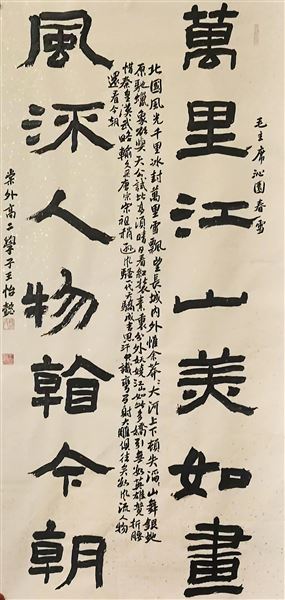 毛主席沁園春雪
萬里江山美如畫
北國風光千里冰封萬里雪飄望長城內外惟余莽々大河上下頓失滔山舞銀蛇
原馳蠟象欲與天公試比高須晴日看紅裝素裹分外妖嬈江山如此多嬌引無數英雄競折腰
惜秦皇漢武略輸文采唐宗宋祖稍遜風騷一代天驕成吉思汗只識彎弓射大雕俱往矣數風流人物
還看今朝
風流人物看今朝
崇外高二學子王怡懿